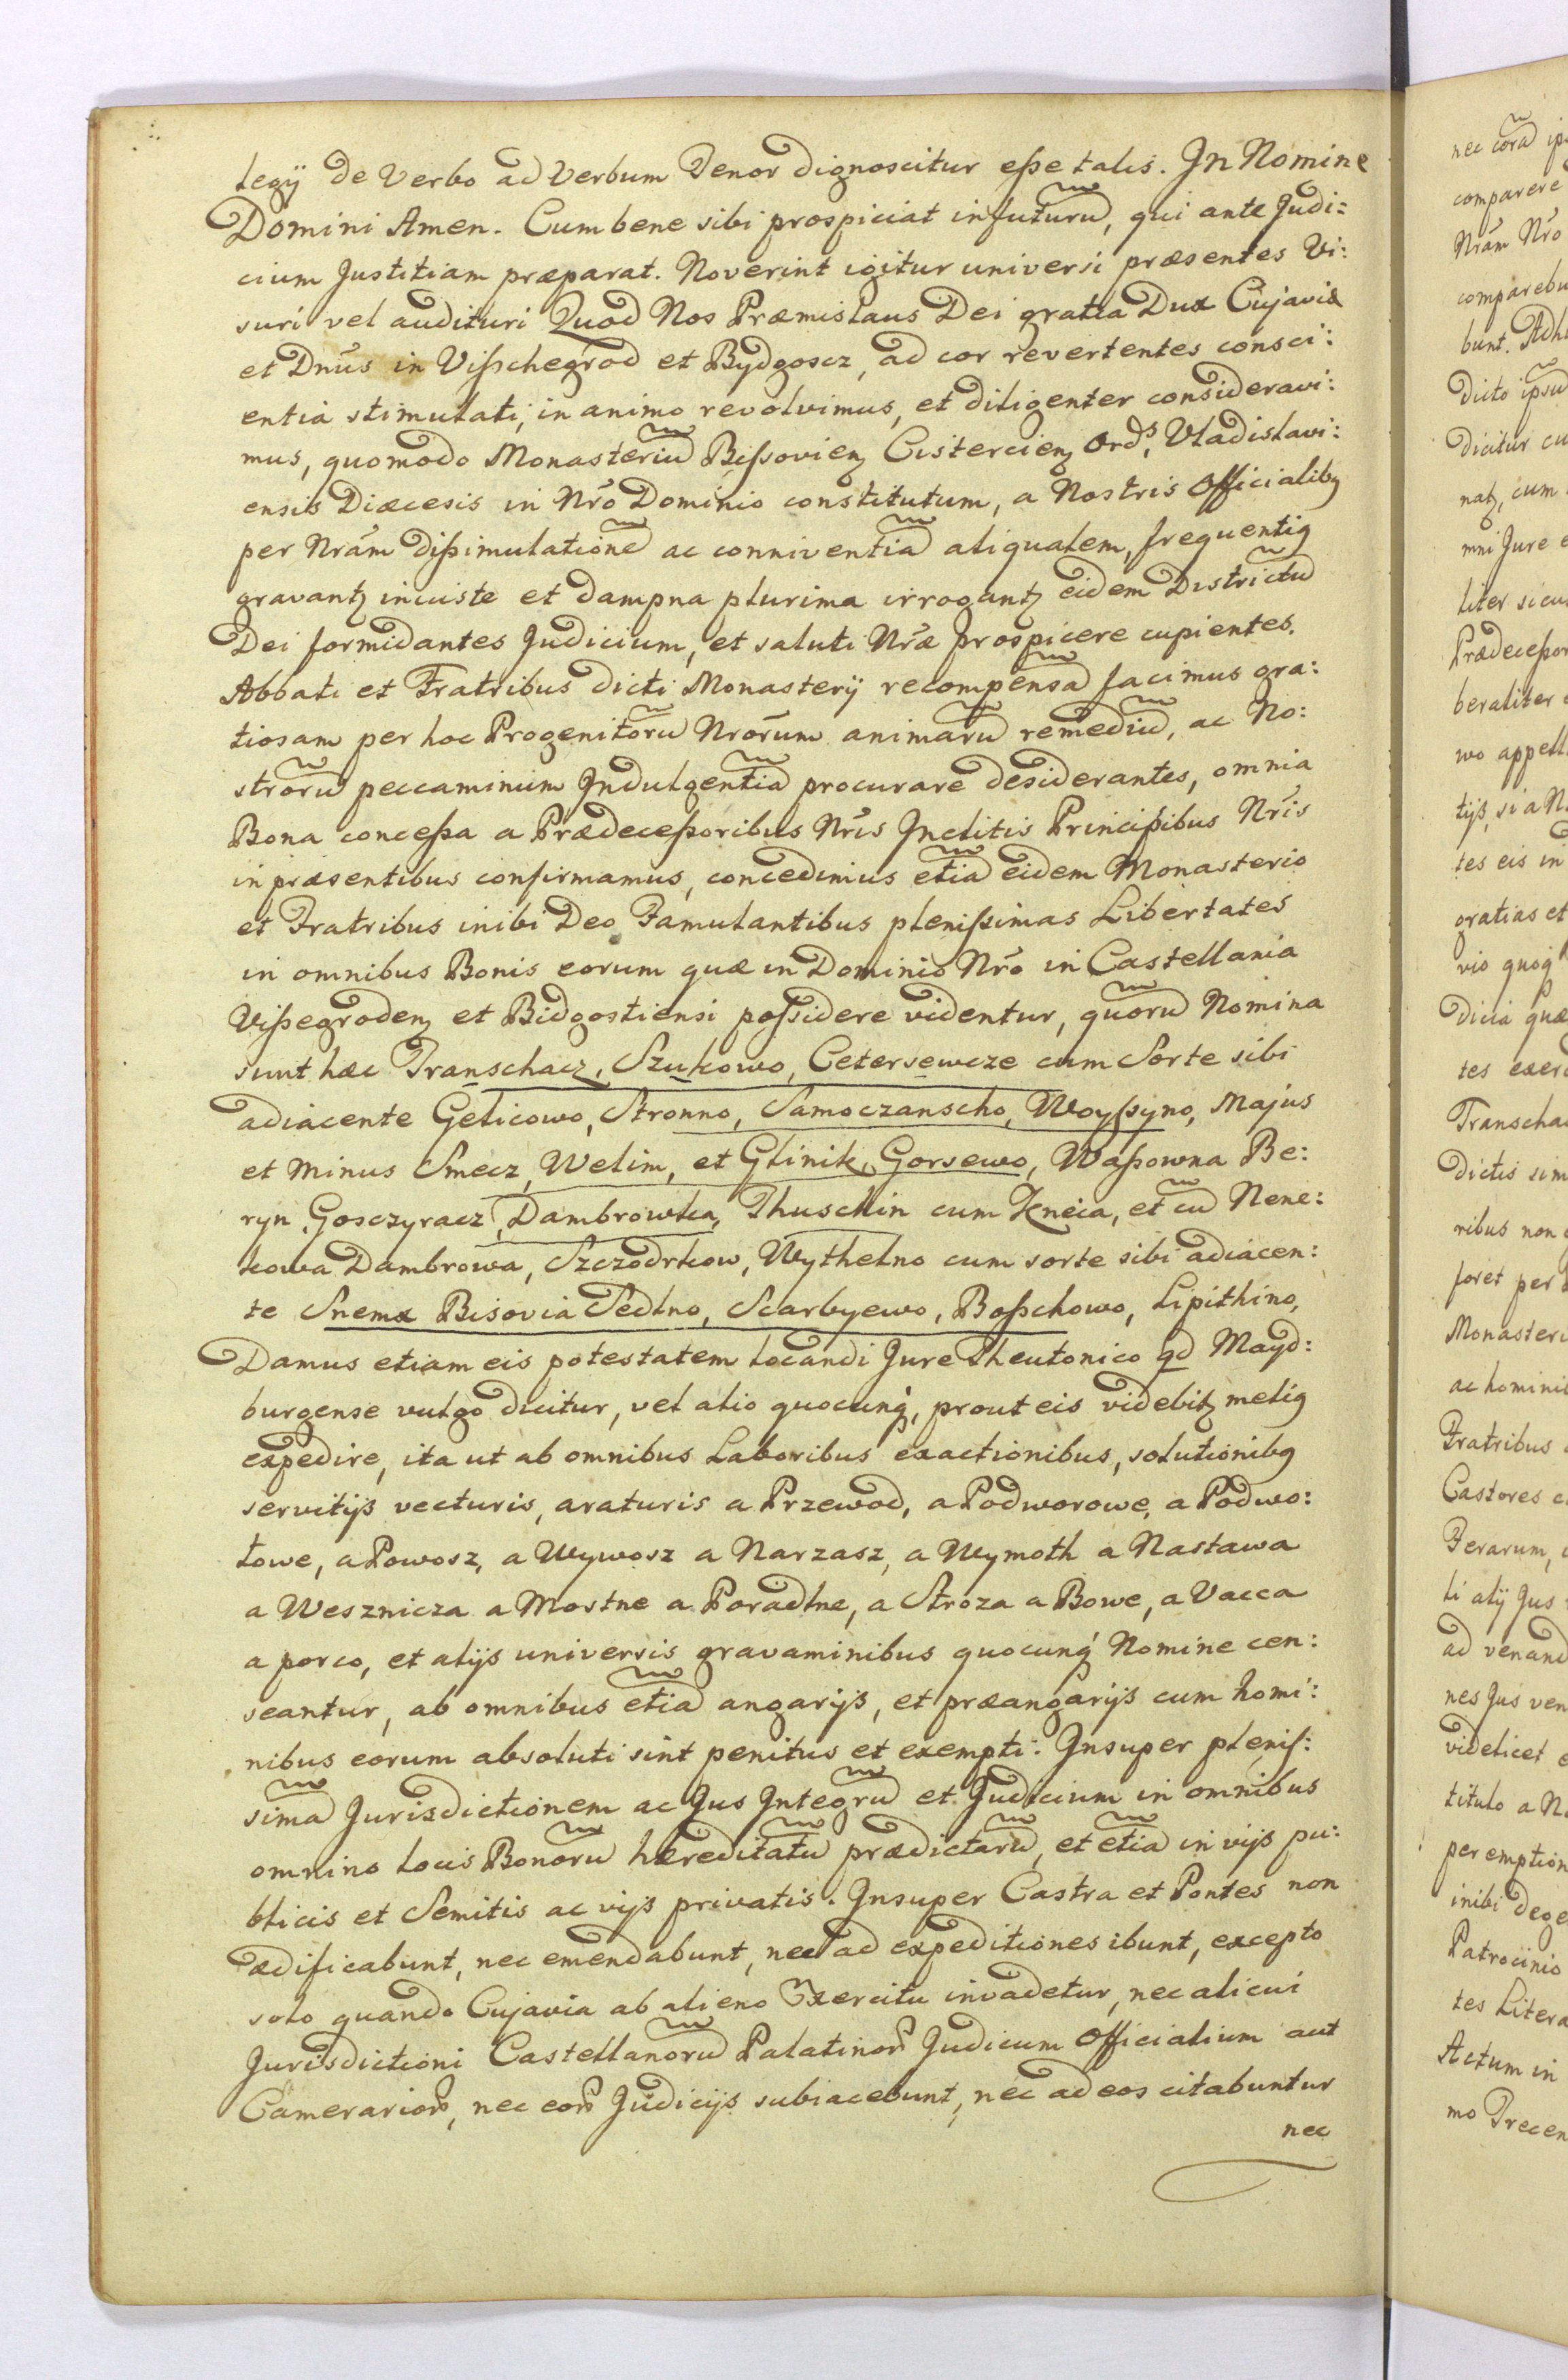 legÿ de Verbo ad Verbum Denor dignoscitur eße talis. In Nomine
Domini Amen. Cum bene sibi prospiciat in futurũ, qui ante Judi:
cium Justitiam præparat. Noverint igitur universi præsentes Vi:
suri vel audituri Quod Nos Præmislaus Dei gratia Dux Cujaviæ
et Dnũs in Vißchegrod et Bydgoscz, ad cor revertentes consci:
entia stimulati, in animo revolvimus, et diligenter consideravi:
mus, quomodo Monasteriũ Bißovienꝫ Cistercienꝫ Ordꝭ, Vladislavi:
ensis Diæcesis in Nrõ Dominio constitutum, a Nostris Officialibꝫ
per Nrãm dißimulationẽ ac conniventiã aliqualem, frequentiꝯ
gravantꝫ iniuste et dampna plurima irrogantꝫ eidem Districtũ
Dei formidantes Judicium, et saluti Nræ̃ prospicere cupientes.
Abbati et Fratribus dicti Monasterÿ recompensã facimus gra:
tiosam per hoc Progenitorũ Nrõrum animarũ remediũ, ac No:
strorũ peccaminum Indulgentiã procurare desiderantes, omnia
Bona conceßa a Prædeceßoribus Nrĩs Inclitis Principibus Nrĩs
in præsentibus confirmamus, concedimus etiã eidem Monasterio
et Fratribus inibi Deo Famulantibus plenißimas Libertates
in omnibus Bonis eorum quæ in Dominio Nrõ in Castellania
Vißegrodenꝫ et Bidgostiensi poßidere videntur, quorũ Nomina
sunt hæc Transchacz, Szukowo, Cetersewcze cum Sorte sibi
adiacente Gelicowo, Stronno, Samoczanscho, Woyßyno, Majus
et Minus Smecz, Welim, et Glinik, Gorsewo, Waßowna Be:
ryn Gosczyracz, Dambrowka, Thuschin cum Kneia, et cũ Nene:
kowa Dambrowa, Szczodrkow, Wythelno cum sorte sibi adiacen:
te Snema Bisovia Sedlno, Scarbyewo, Boßchowo, Lipithino,
Damus etiam eis potestatem locandi Jure Theutonico qd Mayd:
burgense vulgo dicitur, vel alio quocunq́, prout eis videbitꝫ meliꝯ
expedire, ita ut ab omnibus Laboribus exactionibus, solutionibꝯ
servitijs vecturis, araturis a Przewod, a Podworowe, a Podwo:
lowe, a Powosz, a Wywosz a Narzasz, a Wymoth a Nastawa
a Wesznicza a Mostne a Poradlne, a Stroza a Bowe, a Vacca
a porco, et alijs universis gravaminibus quocunq́ Nomine cen:
seantur, ab omnibus etiã angarijs, et præangarijs cum homi:
nibus eorum absoluti sint penitus et exempti: Insuper pleniſ:
simã Jurisdictionem ac Jus Integrũ et Judicium in omnibus
omnino locis Bonorũ hæreditatũ prædictarũ, et etiã in vijs pu:
blicis et Semitis ac vijs privatis. Insuper Castra et Pontes non
ædificabunt, nec emendabunt, nec ad expeditiones ibunt, excepto
solo quando Cujavia ab alieno Exercitu invadetur, nec alicui
Jurisdictioni Castellanorũ Palatinoꝝ Judicum Officialium aut
Camerarioꝝ, nec eoꝝ Judicijs subiacebunt, nec ad eos citabuntur
nec